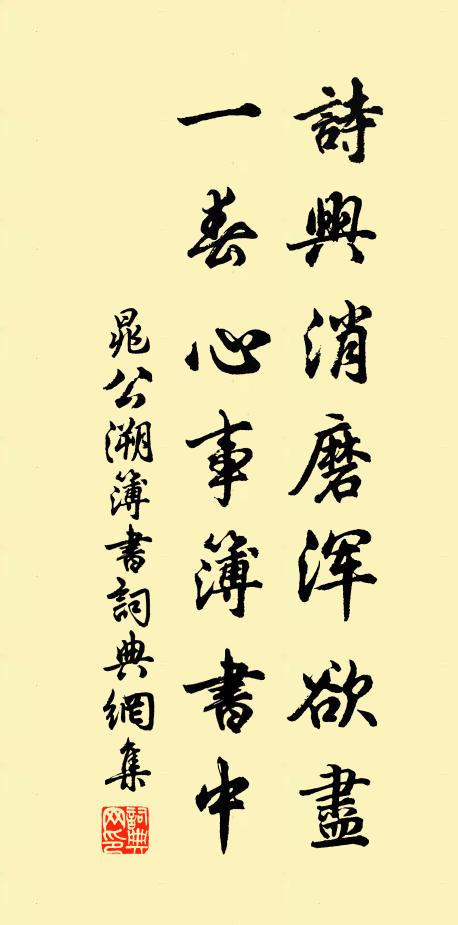 詩興消磨浑欲盡
一春心事簿書中
晁公溯簿書詞典網集
詞典网印